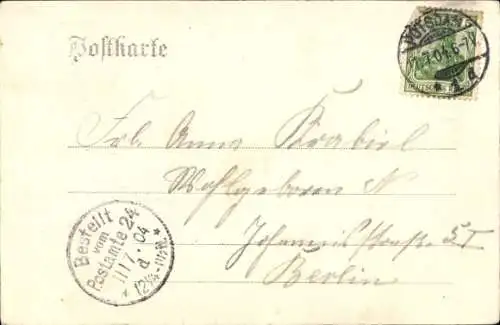 Postkarte
POTSDAM
11.7.04. 6-7N.
* 1. d
DEUTSCHES
Frl. Anna Krabiel
Wohlgeboren N
Johannisstrasse
Berlin
Bestellt
vom
Postamte 24
11 7. 04
d